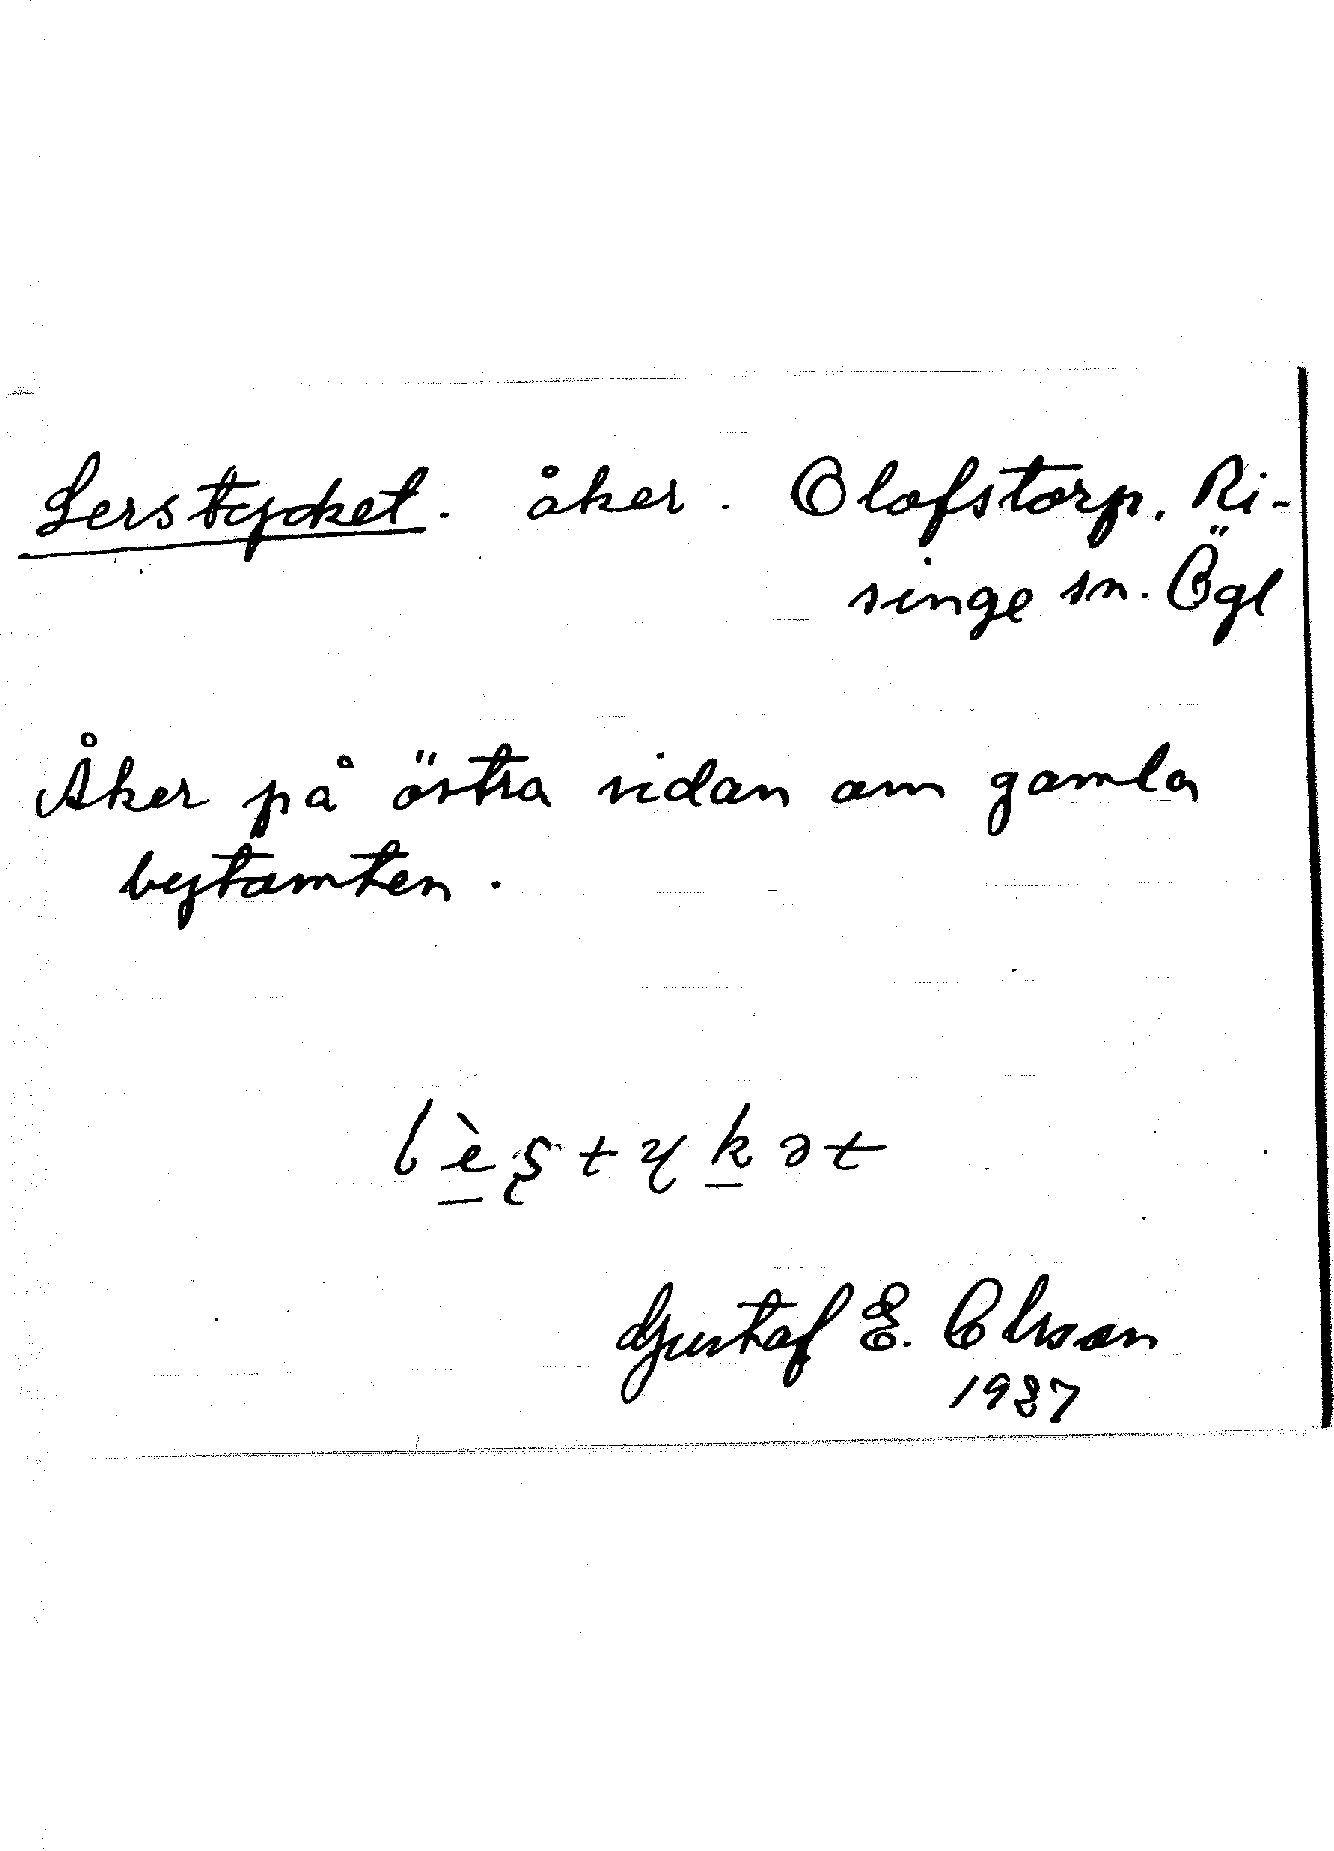 Lerstycket. åker. Olofstorp. Ri-
singe sn. Ögl
Åker på östra sidan om gamla
bytomten.
lèʂtykət
Gustaf E. Olsson
1937